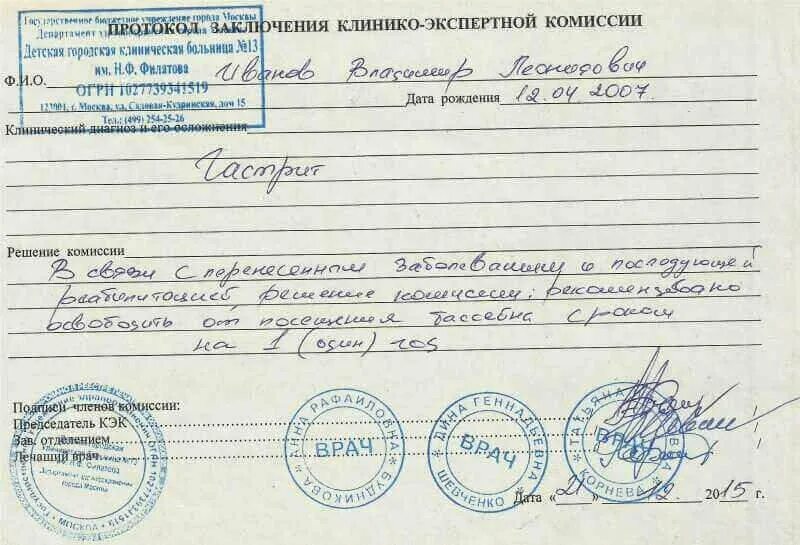 Государственное бюджетное учреждение города Москвы
Департамент здравоохранения города Москвы
Детская городская клиническая больница №13
им. Н.Ф. Филатова
ОГРН 1027739341519
123001, г. Москва, ул. Садовая-Кудринская, дом 15
Тел.: (499) 254-25-26
ПРОТОКОЛ ЗАКЛЮЧЕНИЯ КЛИНИКО-ЭКСПЕРТНОЙ КОМИССИИ
Ф.И.О. Иванов Владимир Леонидович
Дата рождения 12.04 2007.
Клинический диагноз и его осложнения
Гастрит
Решение комиссии
В связи с перенесенным заболеванием и последующей
реабилитацией, решение комиссии: рекомендовано
освободить от посещения бассейна сроком
на 1 (один) год
Подписи членов комиссии:
Председатель КЭК
Зав. отделением
Лечащий врач
АННА РАФАИЛОВНА
ВРАЧ
БУДНИКОВА
ДИНА ГЕННАДЬЕВНА
ВРАЧ
ШЕВЧЕНКО
ТАТЬЯНА
ВРАЧ
КОРНЕВА
им. Н.Ф. Филатова
Департамент здравоохранения
города Москвы
МОСКВА
ОГРН 1027739341519
Дата «21» 12 2015 г.